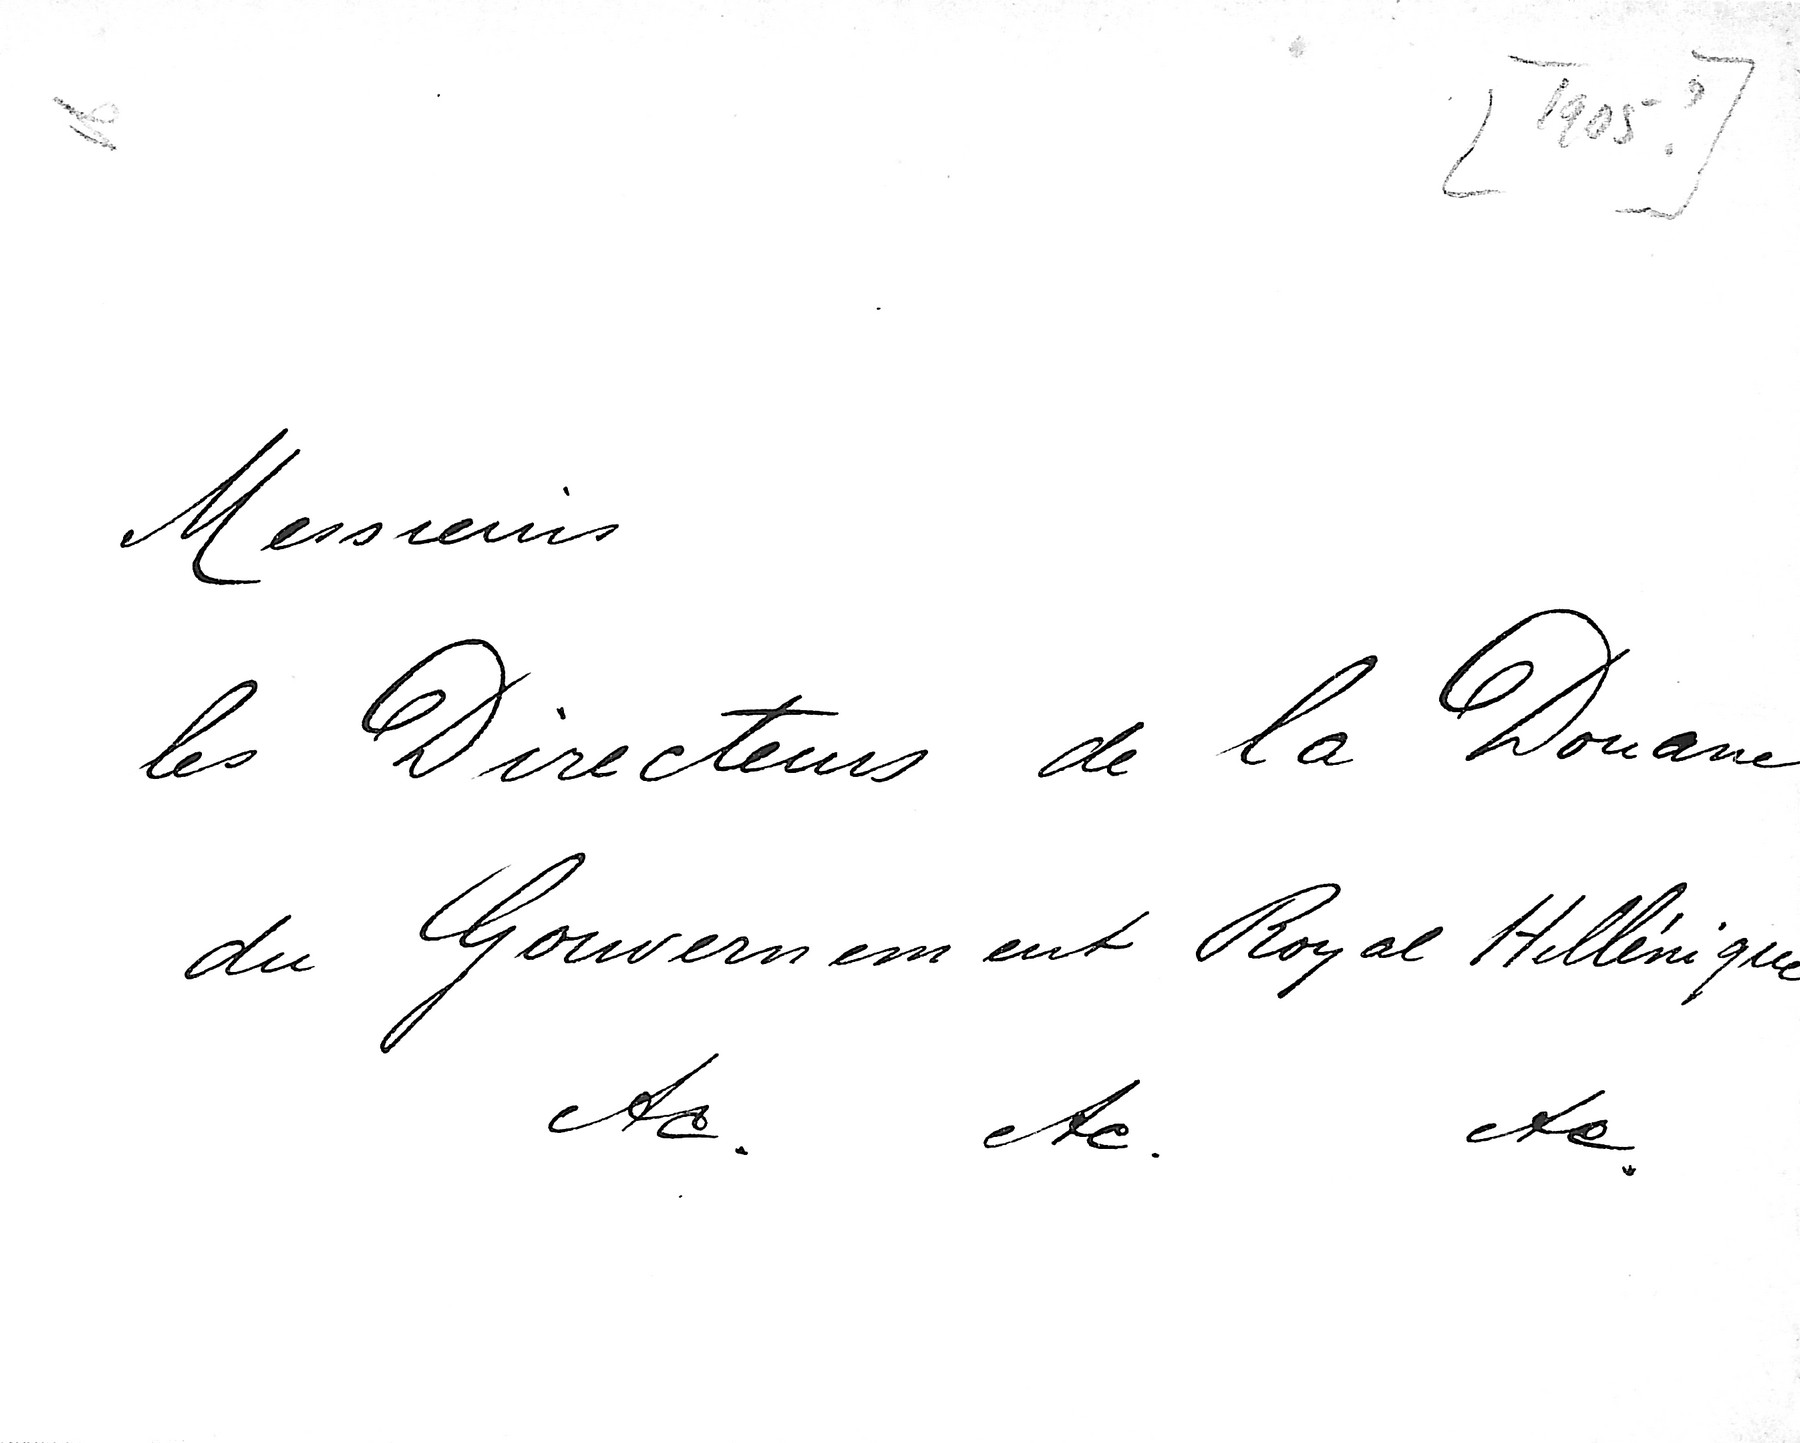 [1905?]
Messieurs
les Directeurs de la Douane
du Gouvernement Royal Hellénique
&c. &c. &c.